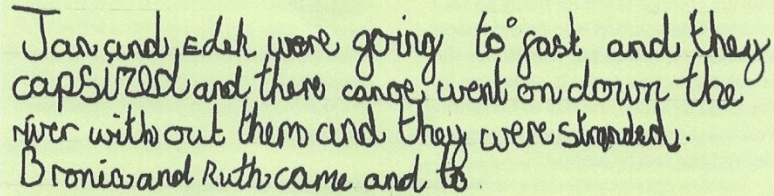 Jan and Edek were going to° fast and they
capsized and there canoe went on down the
river without them and they were stranded.
Bronia and Ruth came and to.